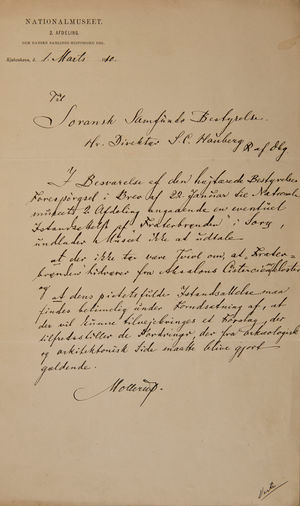 NATIONALMUSEET.
2. AFDELING.
DEN DANSKE SAMLINGS HISTORISKE DEL.
Kjøbenhavn, d. 1. Marts
Til
Soransk Samfunds Bestyrelse.
Hr. Direktør S. C. Hauberg R. af Dbg
I Besvarelse af den højtærede Bestyrelses
Forespørgsel i Brev af 22. Januar til National-
museets 2. Afdeling angaaende en eventuel
Istandsættelse af "Fraterbrønden" i Sorø,
undlader Museet ikke at udtale
at der ikke tør være Tvivl om, at "Frater-
brønden" hidrører fra Absalons Cistercienserkloster
og at dens pietetsfulde Istandsættelse maa
findes betimelig under Forudsætning af, at
der vil kunne tilvejebringes et Forslag, der
tilfredsstiller de Fordringer, der fra arkæologisk
og arkitektonisk Side maatte blive gjort
gældende.
Mollerup.